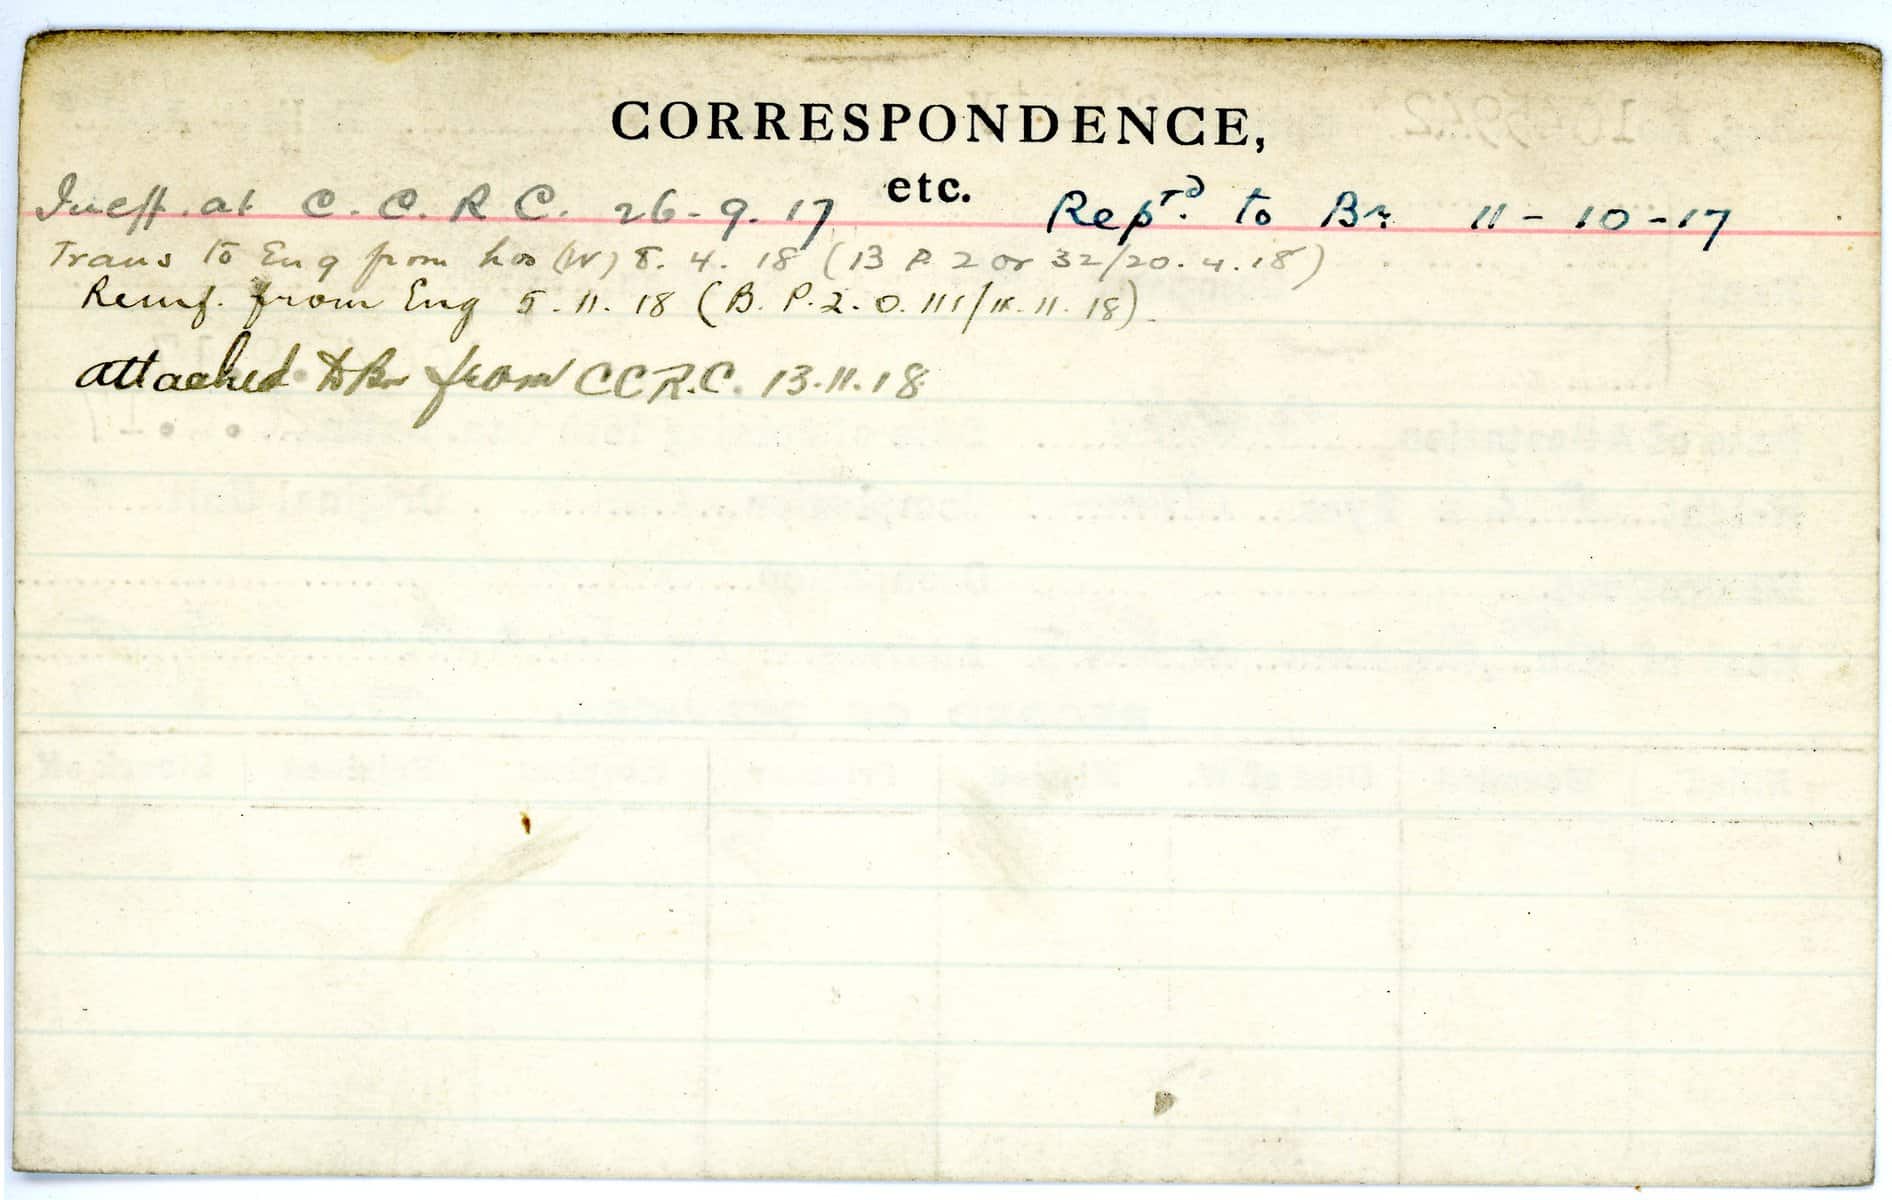 CORRESPONDENCE,
etc.
Ineff. at C. C. R C. 26-9.17 Rept.d to Bn 11-10-17
Trans to Eng from hos (W) 8. 4. 18 (B P. 2 or 32/20. 4. 18)
Reinf. from Eng 5.11.18 (B. P. 2. O. 111/ .11.18).
attached to Bn from CCR.C. 13.11.18